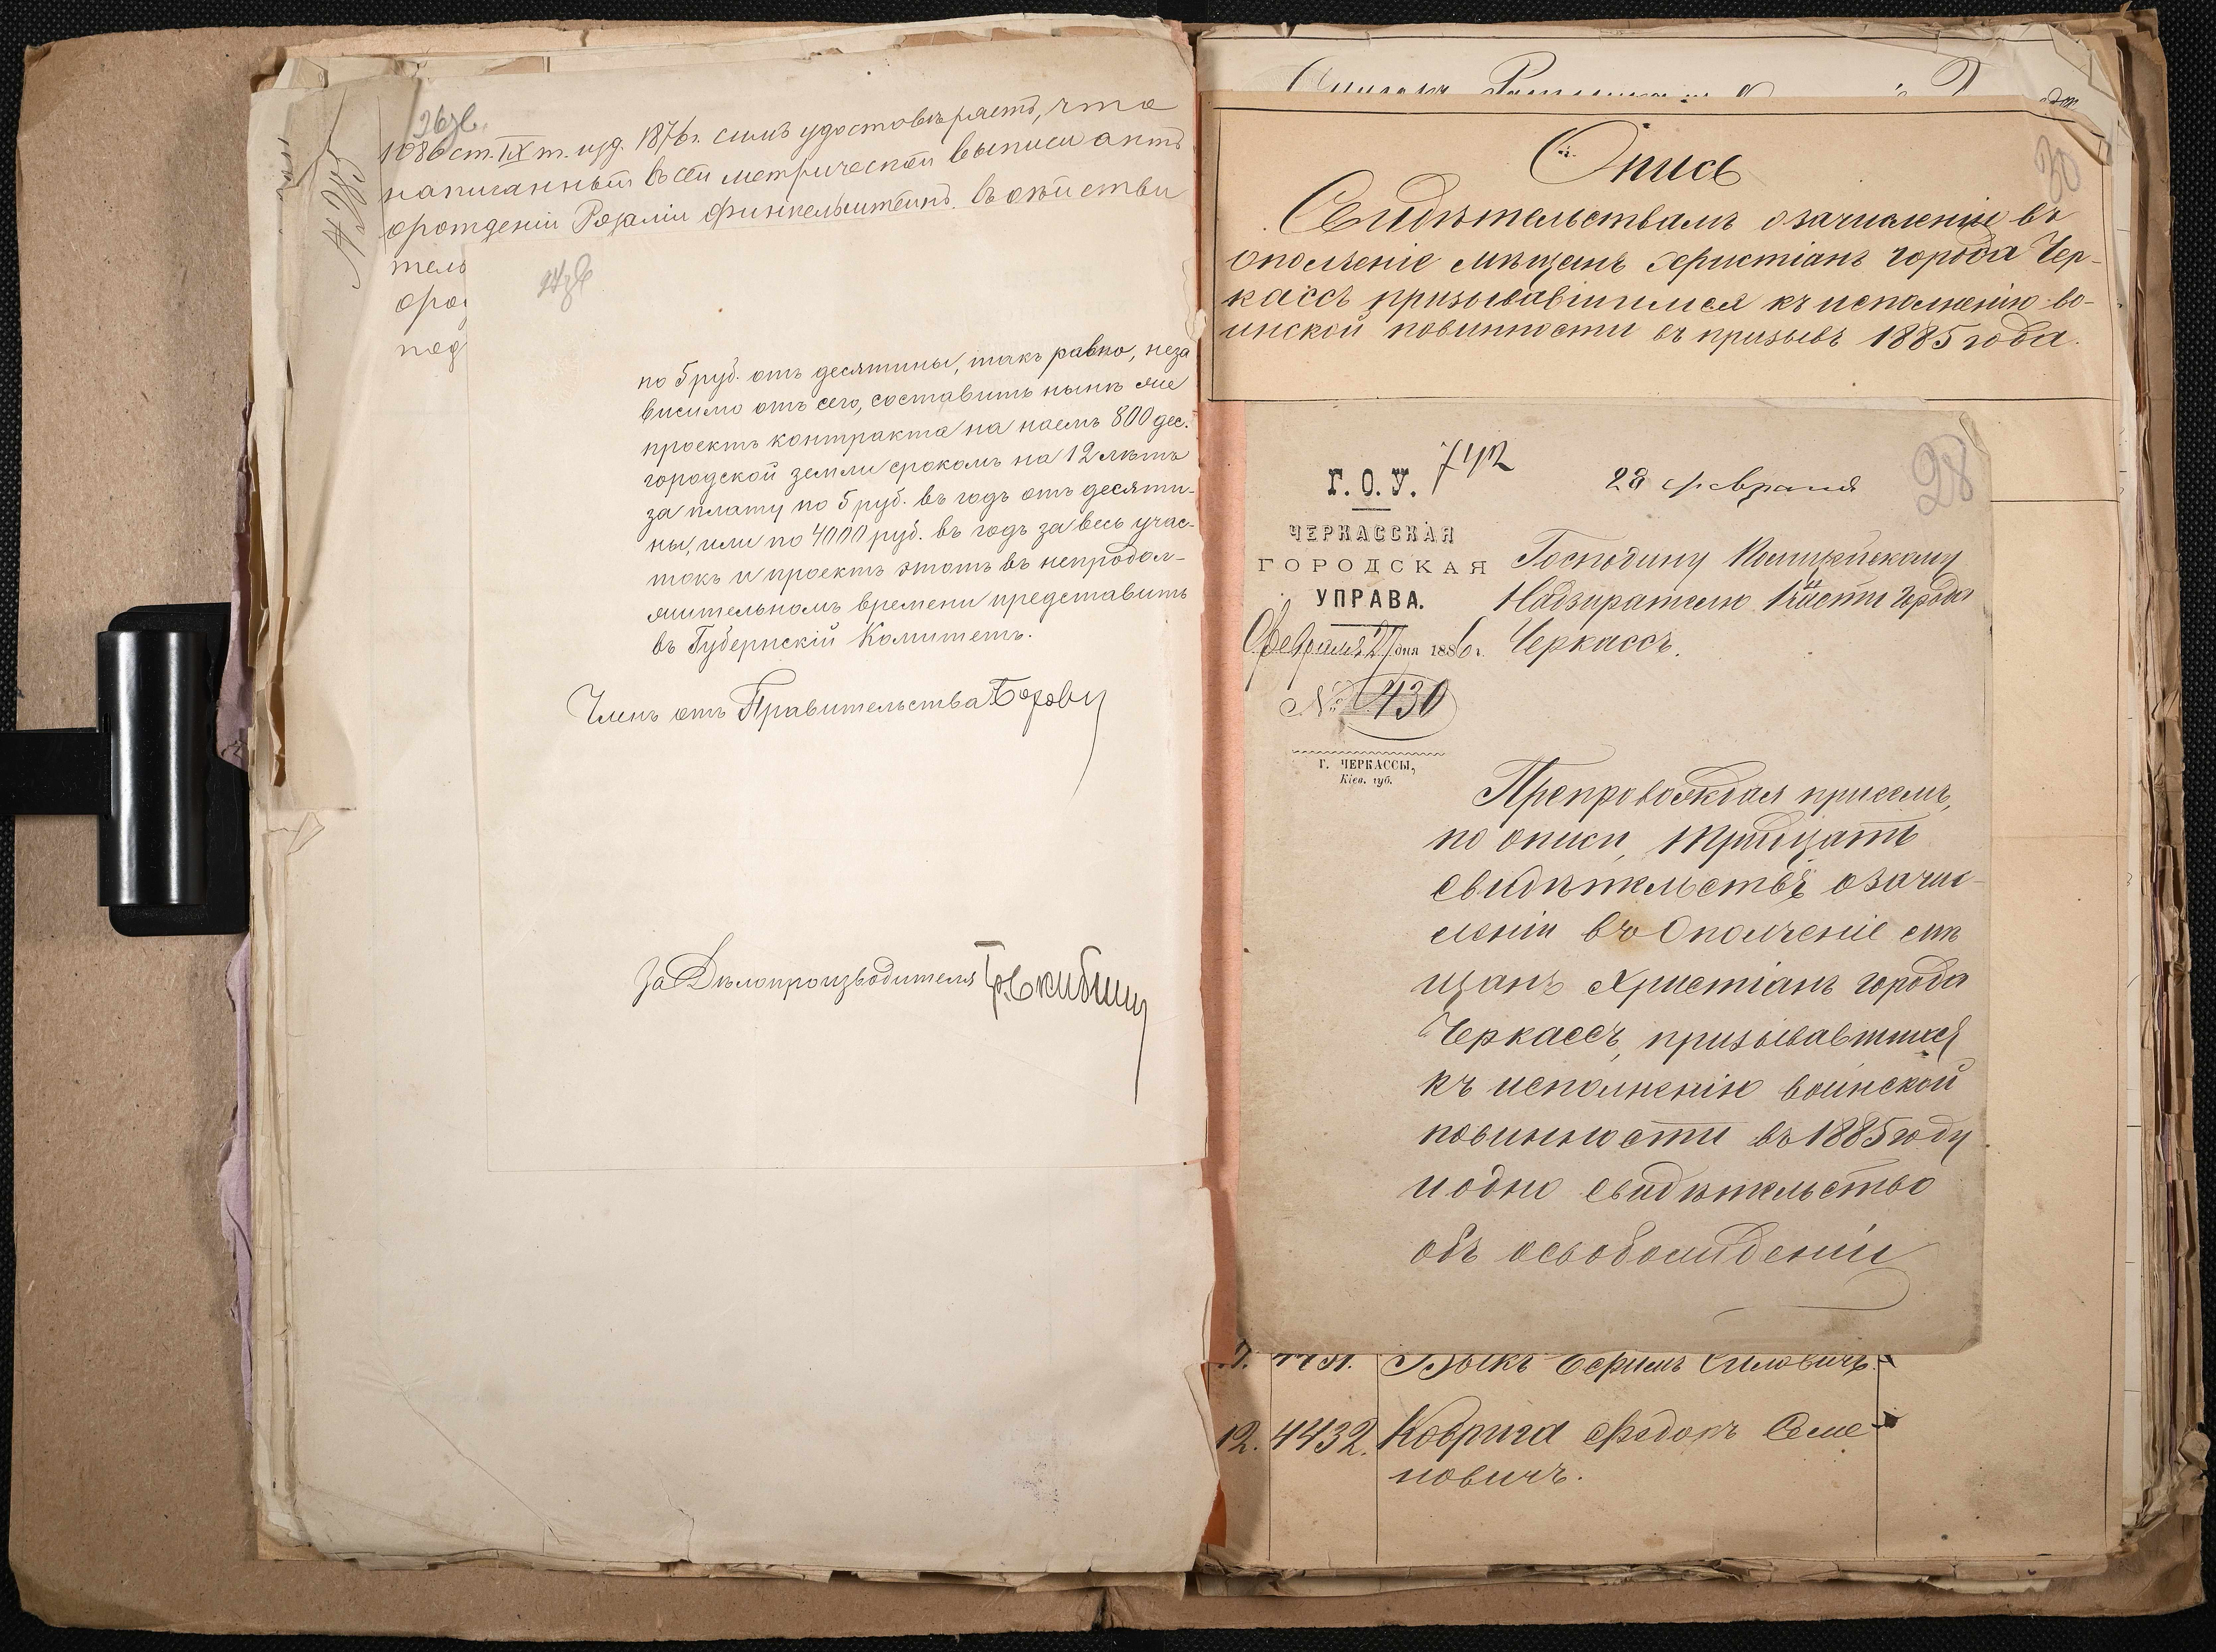 26 зв.
1086 ст. IX т. изд. 1876 г. симъ удостовѣряетъ, что
написанный въ сей метрической выписи актъ
о рожденіи Розаліи Финкельштейнъ. въ дѣйстви
тель
о ро
под
№ 285
27 зв
по 5 руб. отъ десятины, такъ равно, неза
висимо отъ сего, составить нынѣ же
проектъ контракта на наемъ 800 дес.
городской земли срокомъ на 12 лѣтъ
за плату по 5 руб. въ годъ отъ десяти-
ны, или по 4000 руб. въ годъ за весь учас-
токъ и проектъ этотъ въ непродол-
жительномъ времени представить
въ Губернскій Комитетъ.
Членъ отъ Правительства
За Дѣлопроизводителя
30
Опись
Свидѣтельствамъ о зачисленіи въ
ополченіе мѣщанъ христіанъ города Чер-
кассъ призывавшимися къ исполненію во-
инской повинности въ призывъ 1885 года.
28
Г. О. У. 742
28 февраля
ЧЕРКАССКАЯ
ГОРОДСКАЯ
УПРАВА.
Февраля 27 дня 1886 г.
№ 430
Г. ЧЕРКАССЫ,
Кіев. губ.
Господину Полицейскому
Надзирателю 1 части города
Черкассъ.
Препровождая присемъ,
по описи, тридцать
свидѣтельствъ о зачис-
леніи въ Ополченіе мѣ
щанъ Христіанъ города
Черкассъ, призывавшихся
къ исполненію воинской
повинности въ 1885 году
и одно свидѣтельство
объ освобожденіи
4431. Ефимъ Силовичъ.
12. 4432. Коврига Федоръ Семе
новичъ.